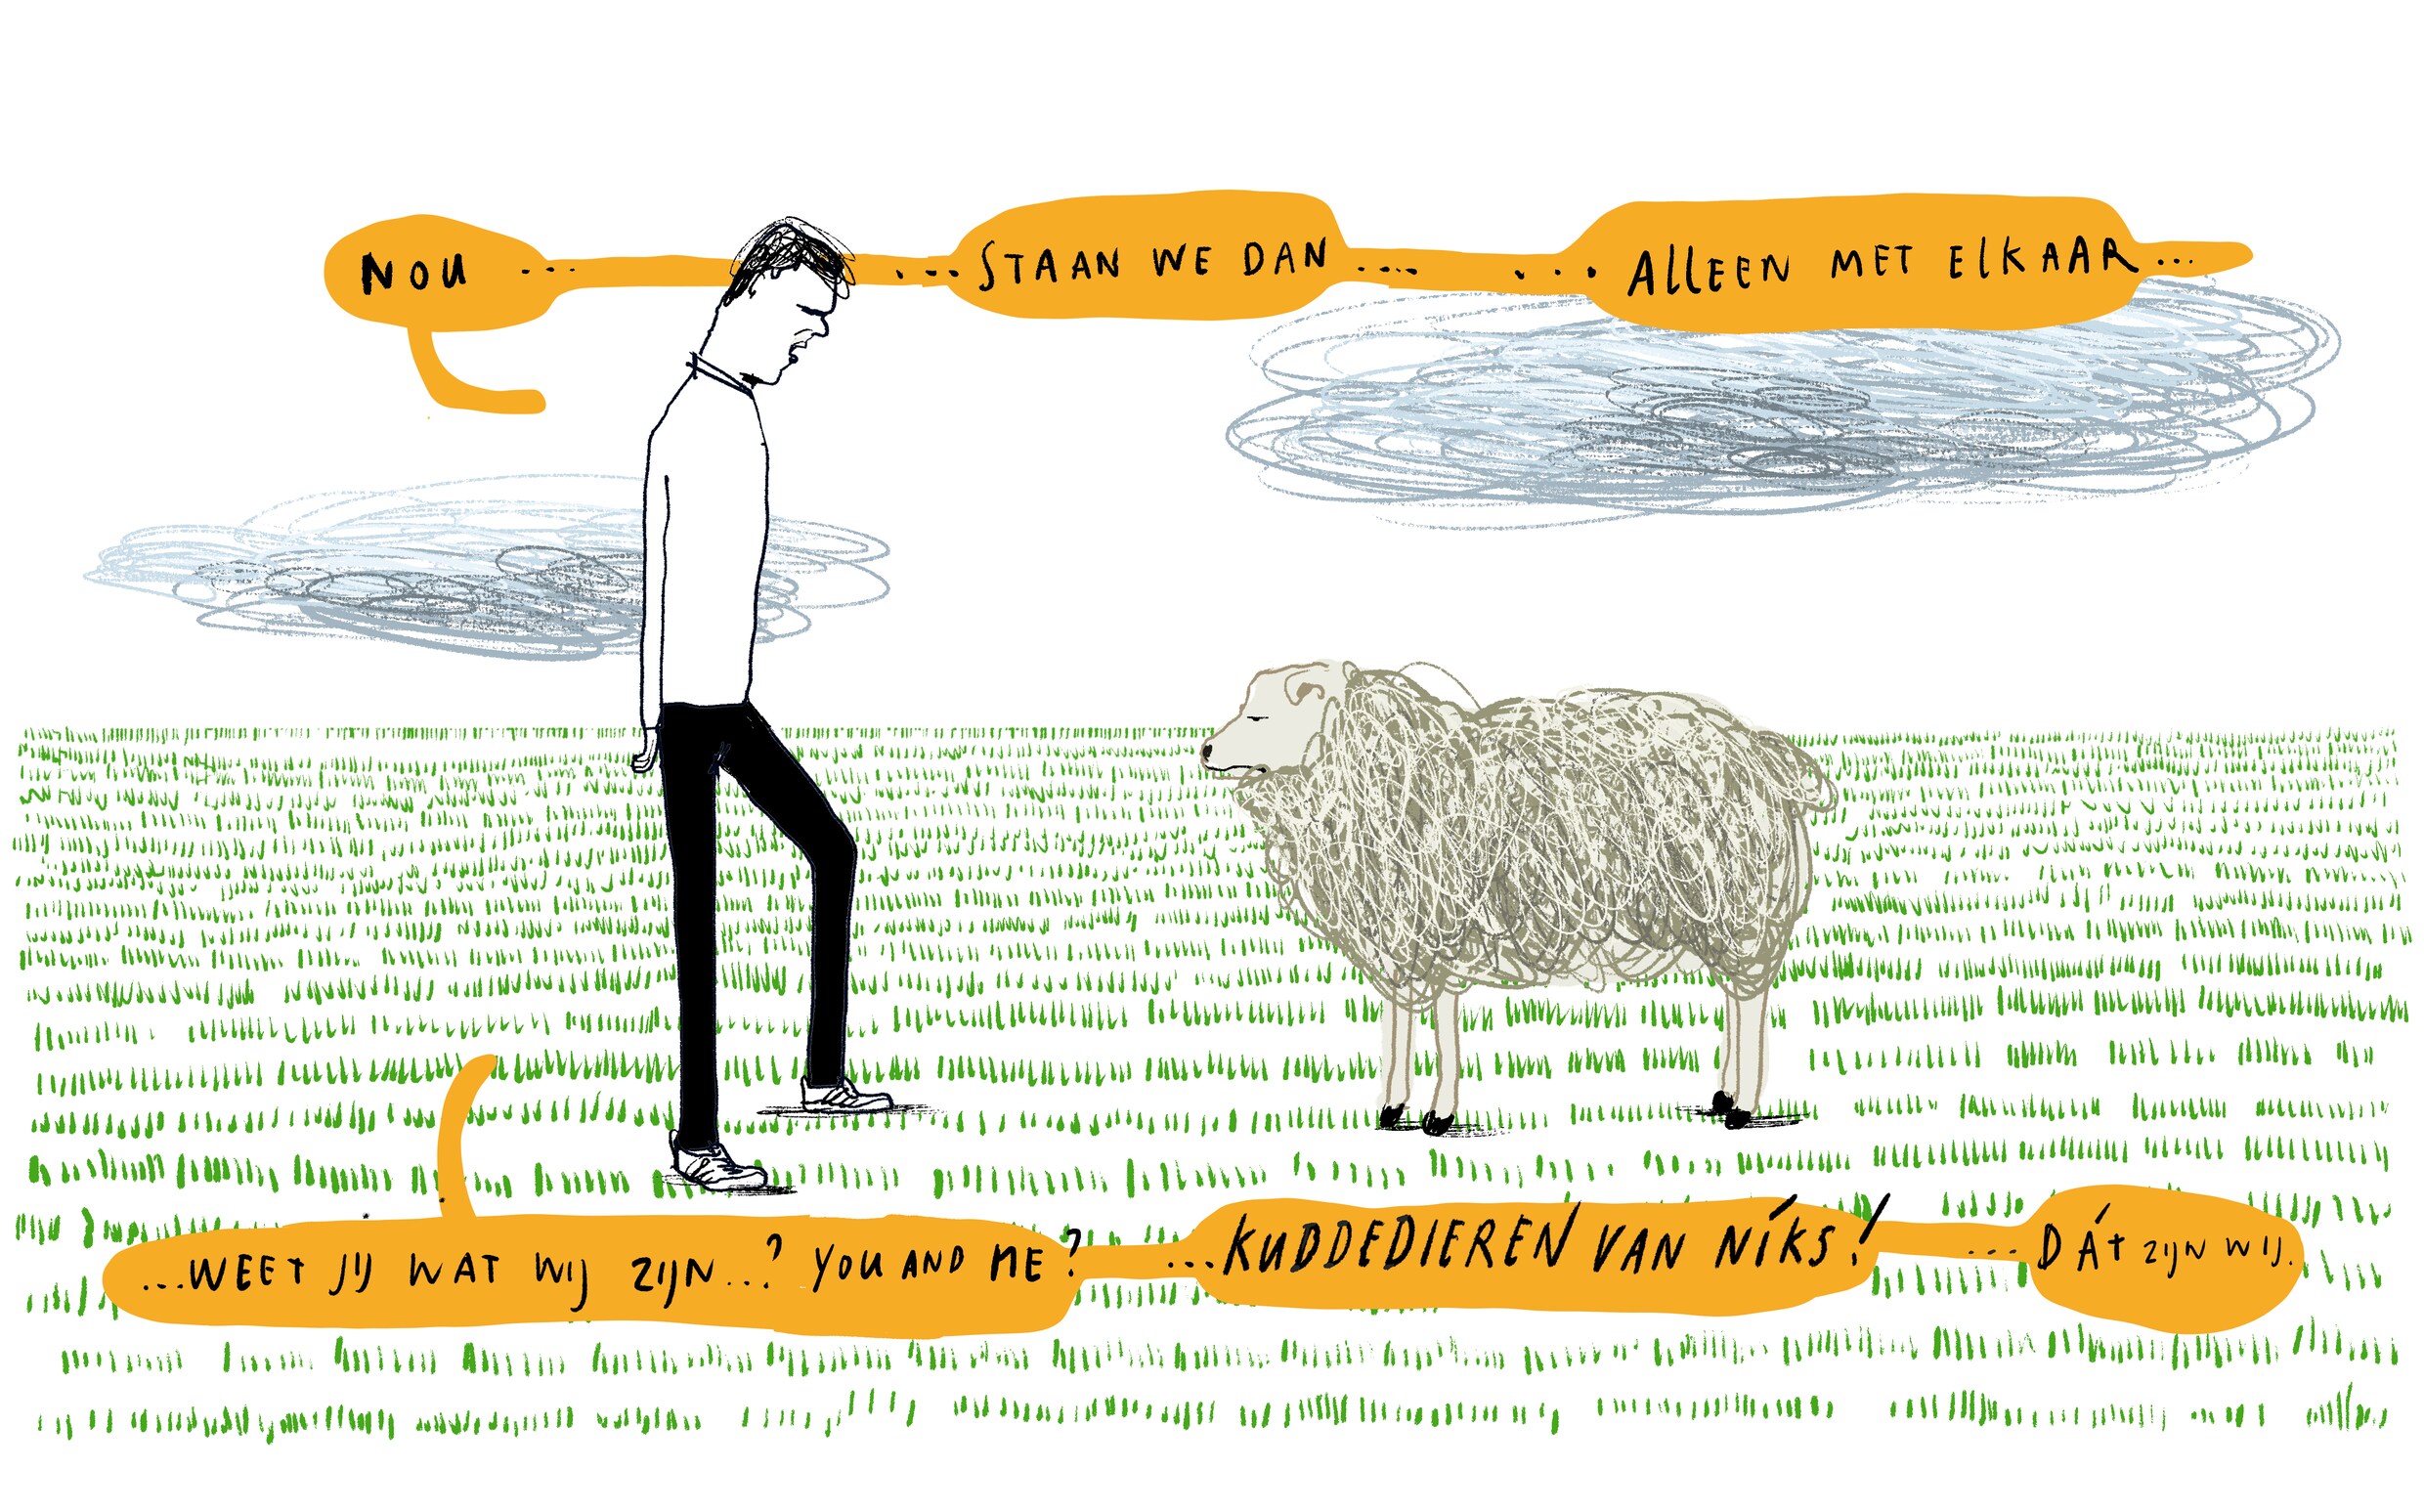 NOU ... ... STAAN WE DAN ... ... ALLEEN MET ELKAAR ...
... WEET JIJ WAT WIJ ZIJN ...? YOU AND ME? ... KUDDEDIEREN VAN NÍKS! ... DÁT ZIJN WIJ.